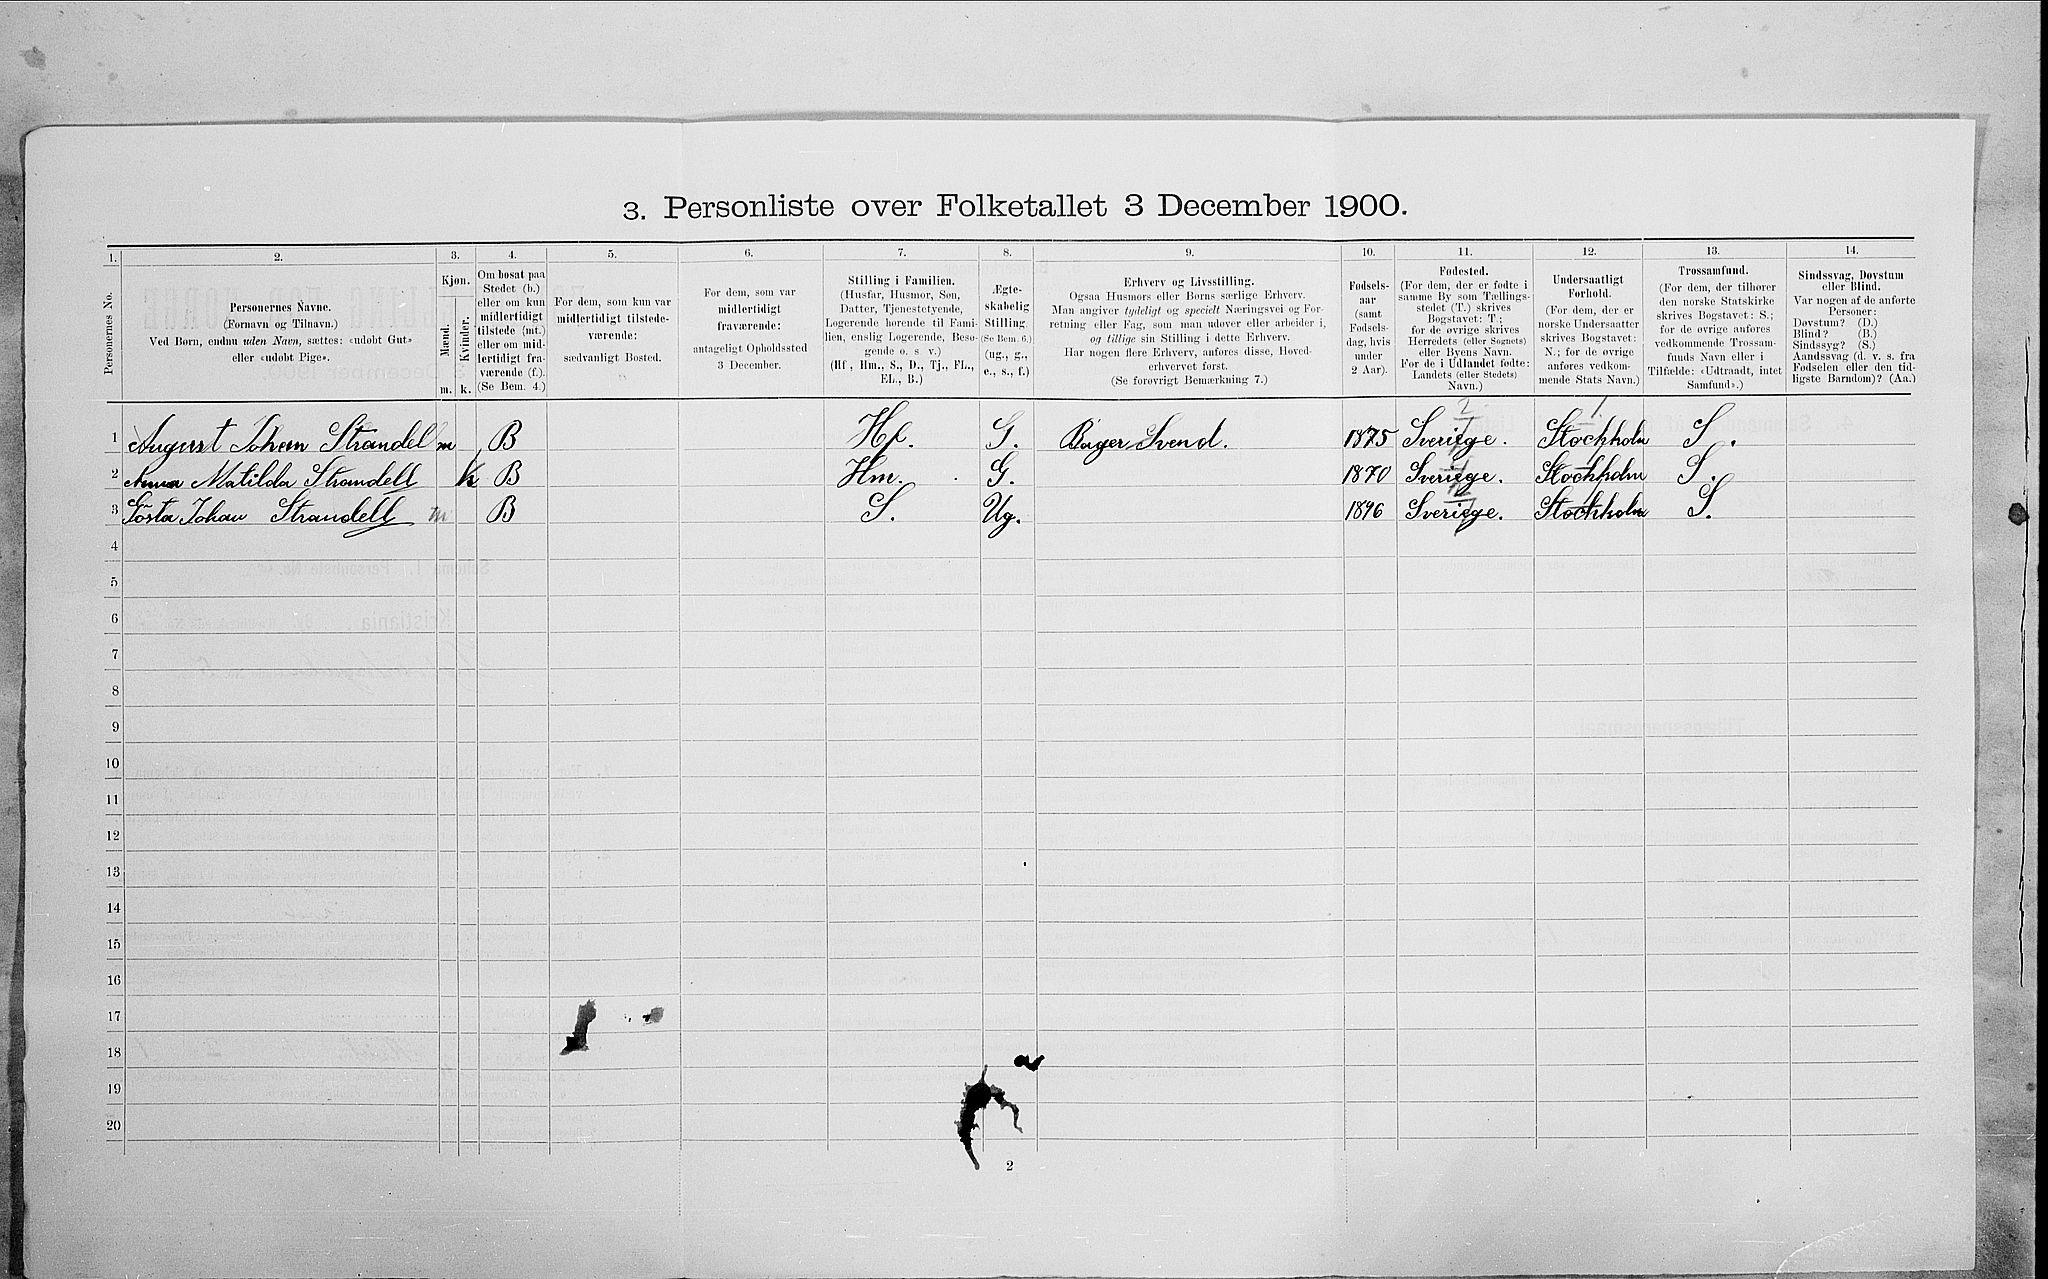 3. Personliste over Folketallet 3 December 1900.
1. 2. 3. 4. 5. 6. 7. 8. 9. 10. 11. 12. 13. 14.
Personernes No.
Personernes Navne.
(Fornavn og Tilnavn.)
Ved Børn, endnu uden Navn, sættes: «udobt Gut»
eller «udobt Pige».
Kjøn.
Mænd.
Kvinder.
m. k.
Om bosat paa
Stedet (b.)
eller om kun
midlertidigt
tilstede (mt.)
eller om mid-
lertidigt fra-
værende (f.).
(Se Bem. 4.)
For dem, som kun var
midlertidigt tilstede-
værende:
sædvanligt Bosted.
For dem, som var
midlertidigt
fraværende:
antageligt Opholdssted
3 December.
Stilling i Familien.
(Husfar, Husmor, Søn,
Datter, Tjenestetyende,
Logerende hørende til Fami-
lien, enslig Logerende, Besø-
gende o. s. v.)
(Hf, Hm., S., D., Tj., FL.,
EL., B.)
Ægte-
skabelig
Stilling.
(Se Bem. 6.)
(ug., g.,
e., s., f.)
Erhverv og Livsstilling.
Ogsaa Husmors eller Børns særlige Erhverv.
Man angiver tydeligt og specielt Næringsvei og For-
retning eller Fag, som man udøver eller arbeider i,
og tillige sin Stilling i dette Erhverv.
Har nogen flere Erhverv, anføres disse, Hoved-
erhvervet først.
(Se forøvrigt Bemærkning 7.)
Fødsels-
aar
(samt
Fødsels-
dag, hvis
under
2 Aar).
Fødested.
(For dem, der er fødte i
samme By som Tællings-
stedet (T.) skrives
Bogstavet: T.;
for de øvrige skrives
Herredets (eller Sognets)
eller Byens Navn.
For de i Udlandet fødte:
Landets (eller Stedets)
Navn.)
Undersaatligt
Forhold.
(For dem, der er
norske Undersaatter
skrives Bogstavet:
N.; for de øvrige
anføres vedkom-
mende Stats Navn.)
Trossamfund.
(For dem, der tilhører
den norske Statskirke
skrives Bogstavet: S.;
for de øvrige anføres
vedkommende Trossam-
funds Navn eller i
Tilfælde: «Udtraadt, intet
Samfund».)
Sindssvag, Døvstum
eller Blind.
Var nogen af de anførte
Personer:
Døvstum? (D.)
Blind? (B.)
Sindssyg? (S.)
Aandssvag (d. v. s. fra
Fødselen eller den tid-
ligste Barndom)? (Aa.)
1 August Johan Strandell m B Hf. G. Bager Svend. 1875 Sveriege. Stockholm S.
2 Anna Matilda Strandell k B Hm. G. 1870 Sveriege. Stockholm S.
3 Gösta Johan Strandell m B S. Ug. 1896 Sveriege. Stockholm S.
4
5
6
7
8
9
10
11
12
13
14
15
16
17
18
19
20
2